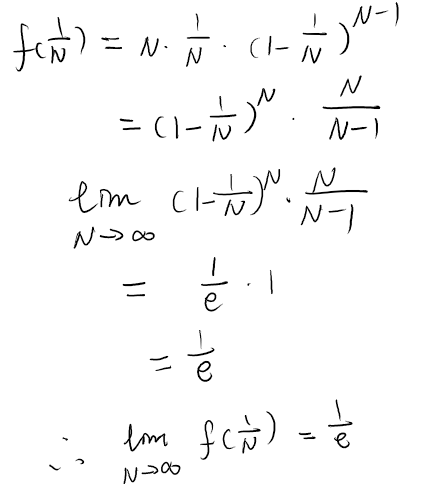 f(1/N) = N · 1/N · (1 - 1/N)^(N-1)
= (1 - 1/N)^N · N/(N-1)
lim N→∞ (1 - 1/N)^N · N/(N-1)
= 1/e · 1
= 1/e
∴ lim N→∞ f(1/N) = 1/e